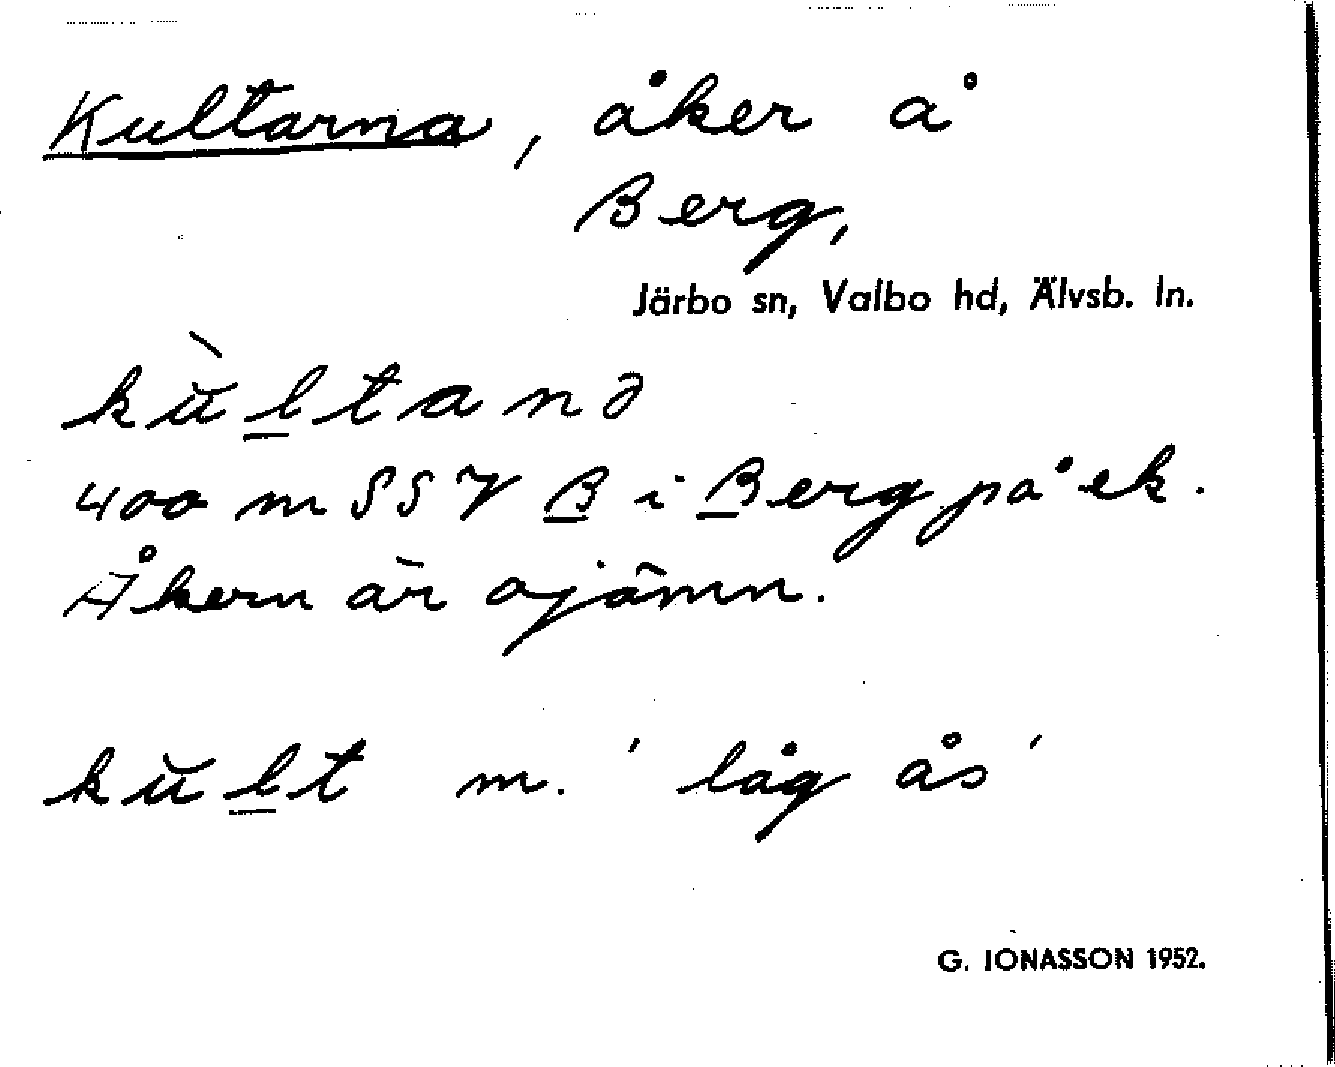 Kultarna, åker å
Berg,
Järbo sn, Valbo hd, Älvsb. ln.
kù̆l̲tanə
400 m SSV B̲ i B̲erg på ek.
Åkern är ojämn.
kŭl̲t m. ' låg ås '
G. IONASSON 1952.